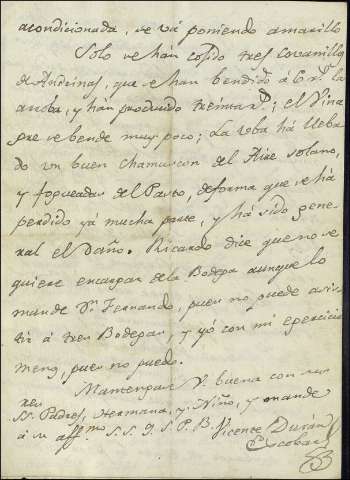 acondicionada, se vá poniendo amarillo
Solo se han cojido tres Covanillos
de Andrinas, que se han bendido á 6 rs. la
arroba, y han producido treinta rs; el Vina
gre se bende muy poco; La Uba há lleba
do un buen chamuscon del Aire solano,
y fogueadas del Pasto, de forma que se há
perdido yá mucha parte, y há sido gene
ral el Daño. Ricardo dice que no se
quiere encargar de la Bodega aunque lo
mande Dn. Fernando, pues no puede asis
tir á tres Bodegas, y yó con mi egercicio
menos, pues no puedo.
Mantengase V. buena con sus
Ss. Padres, Hermana, y Niño, y mande
á su affmo. S. S. Q. S. P. B. Vicente Durán
Escobar